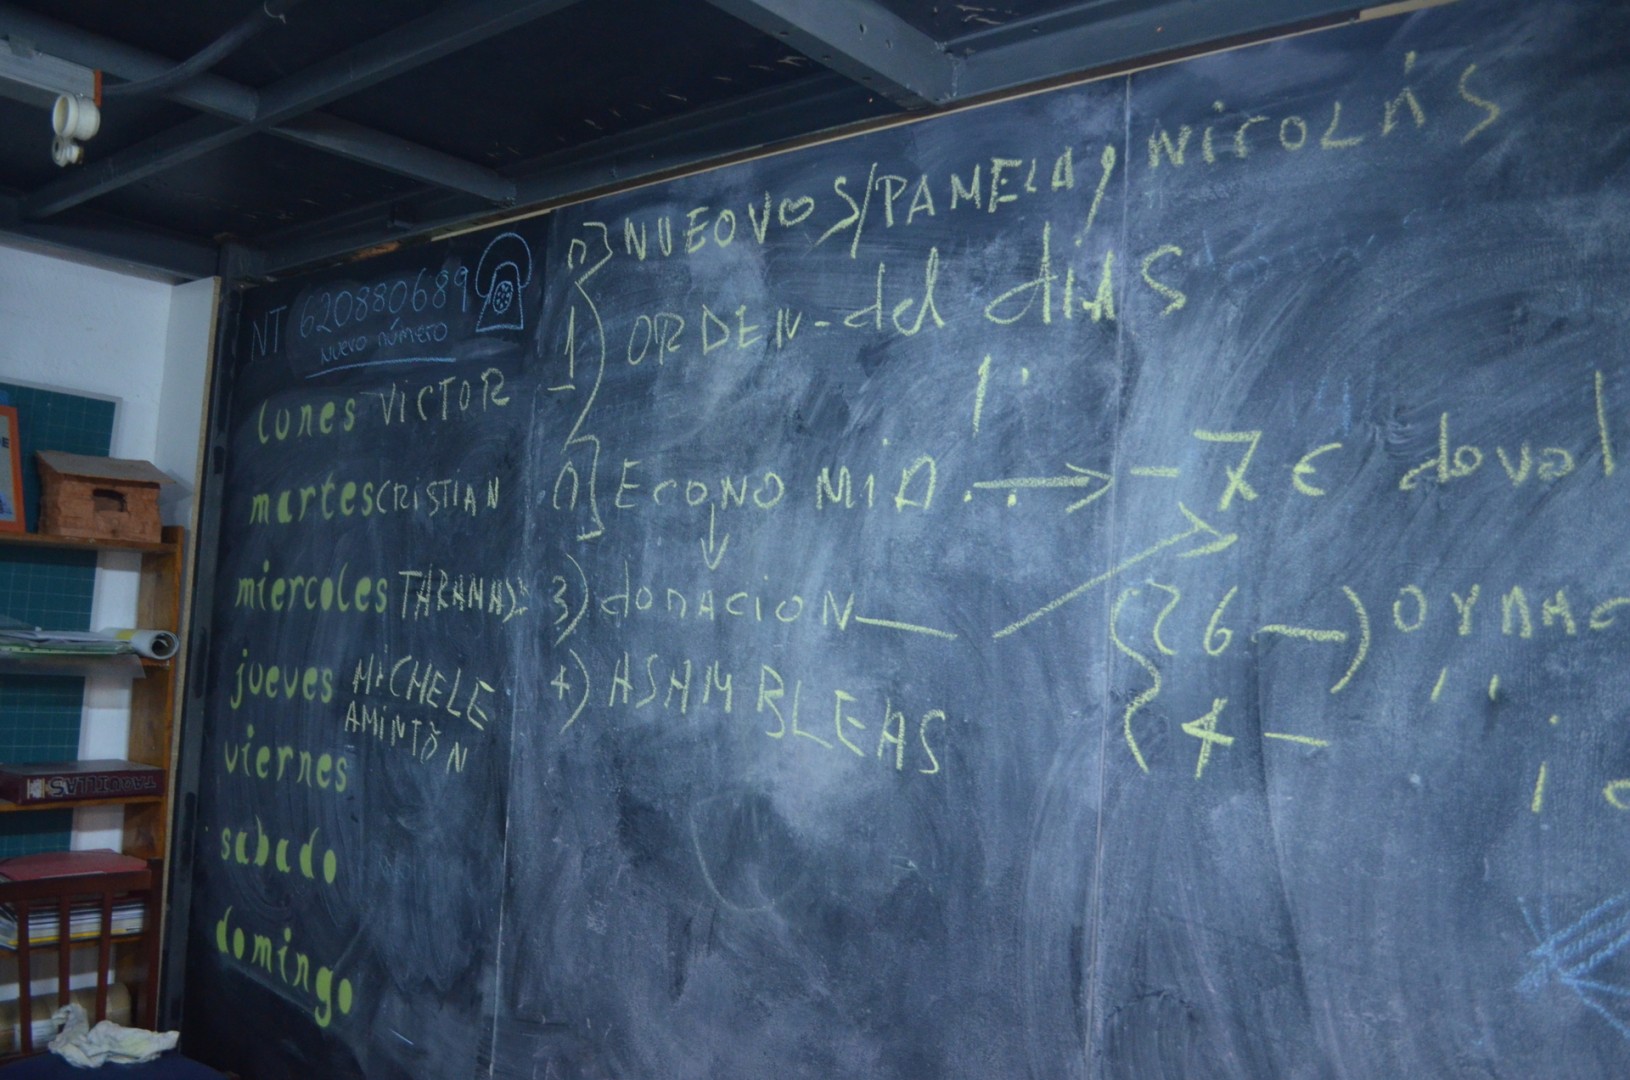 NT 620880689
Nuevo número
lunes VICTOR
martes CRISTIAN
miercoles
jueves MICHELE
AMINTÖN
viernes
sabado
domingo
0] NUEOVOS/PAMELA, NICOLÁS
1) ORDEN-del diAS
ECONOMIA. → -7 €
3) donACION
4) ASAMBLEAS
26 —)
4 —
TAQUILLAS